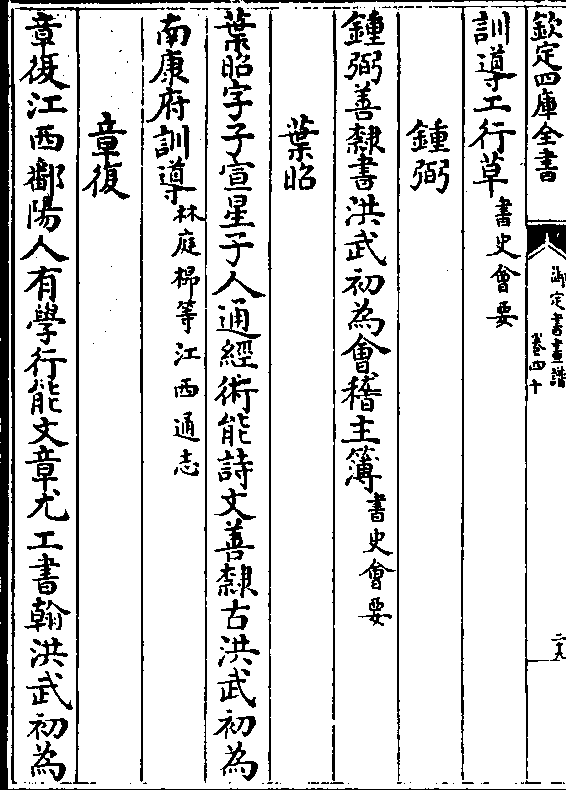 欽定四庫全書
御定書畫譜
卷四十
二九
訓導工行草書史會要
鍾弼
鍾弼善隸書洪武初為會稽主簿書史會要
葉昭
葉昭字子宣星子人通經術能詩文善隸古洪武初為
南康府訓導林庭棉等江西通志
章復
章復江西鄱陽人有學行能文章尤工書翰洪武初為